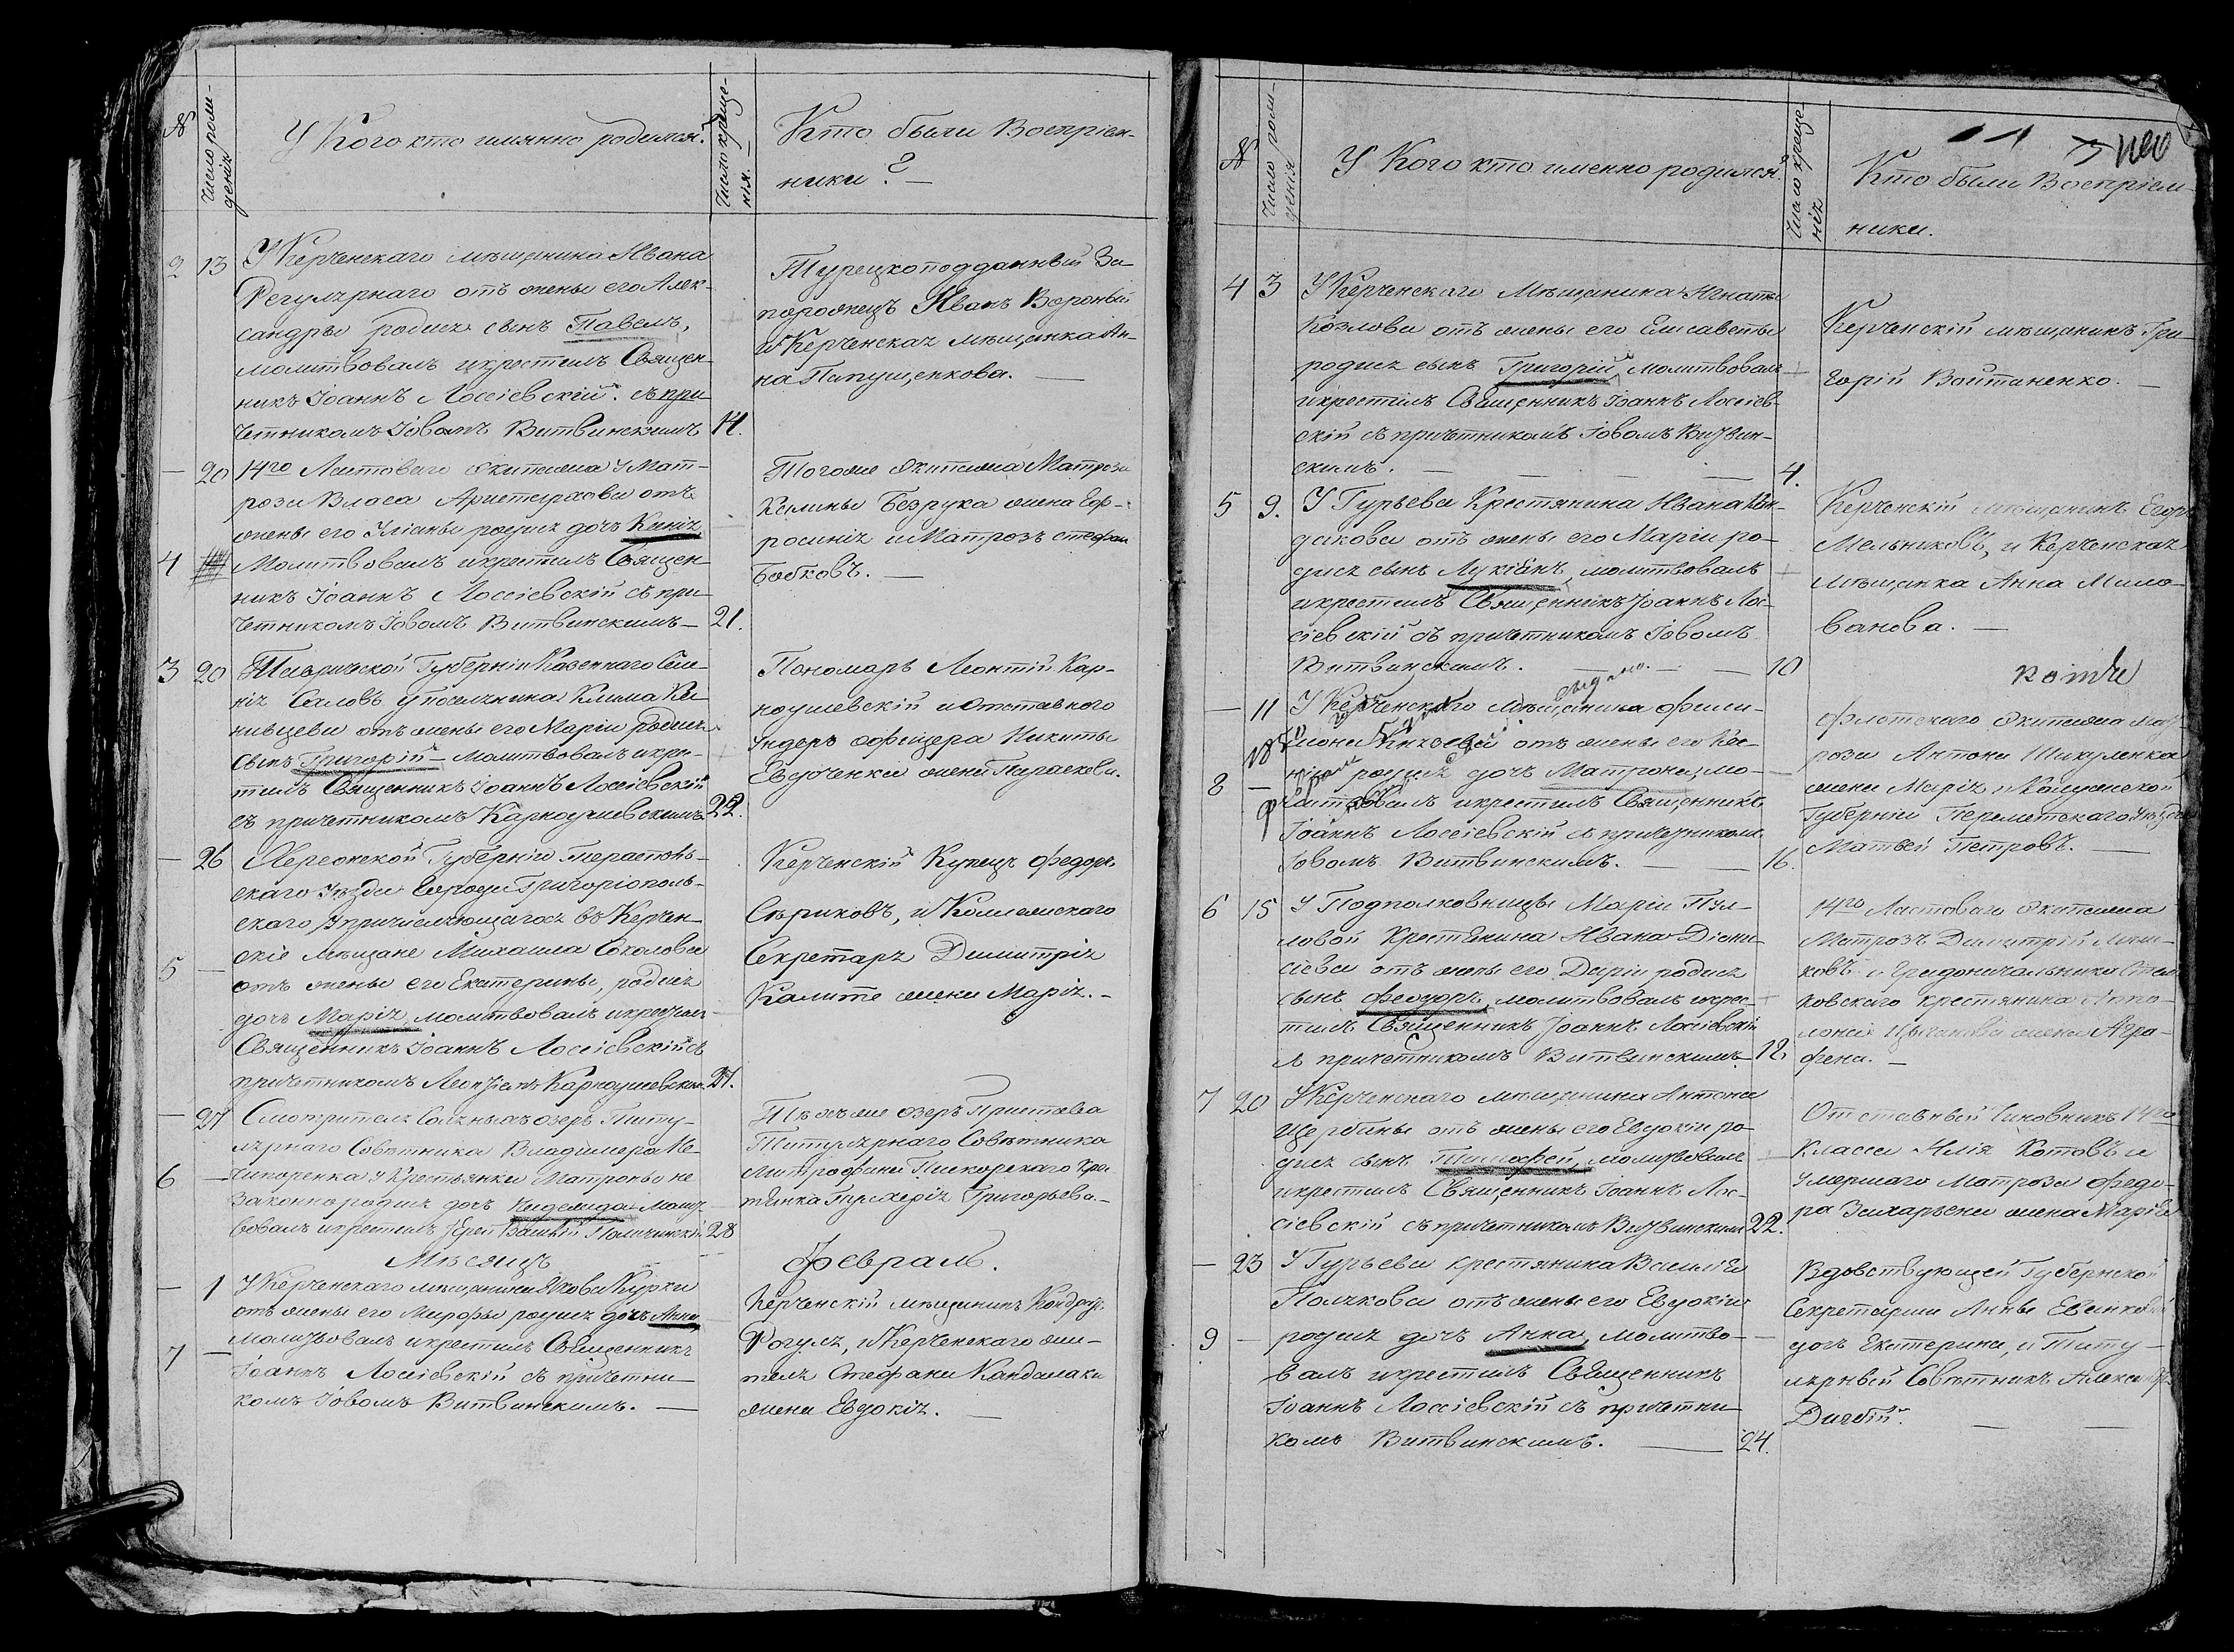 №
Число рожденія
У Кого кто имянно родился?
Число крещенія.
Кто были Воспріем-
ники? —
2 13 У Керченскаго мѣщанина Ивана
Регулярнаго отъ жены его Алек-
сандры родися сынъ Павелъ,
молитвовалъ и крестилъ Священ-
никъ Іоаннъ Лоссіевскій съ при
четникомъ Іовомъ Витвинскимъ 14.
Турецкоподданный За-
порожецъ Иванъ Вороный
и Керченская мѣщанка Ан-
на Папущенкова. —
— 20 14го Ластоваго Экипажа у Мат-
роза Власа Аристархова отъ
жены его Уліаны родися дочь Ксенія
4 Молитвовалъ и крестилъ Священ-
никъ Іоаннъ Лоссіевскій съ при-
четникомъ Іовомъ Витвинскимъ — 21.
Тогоже Экипажа Матроза
Безрука жена Еф-
росинія и Матрозъ Стефан
Бобковъ. —
3 20 Таврической Губерніи Казеннаго
Саловъ у поселянина Клима
отъ жены его Маріи родися
сынъ Григорій — молитвовалъ и кре-
тилъ Священникъ Іоаннъ Лоссіевскій
съ причетникомъ Карноушевскимъ 22.
Пономарь Леонтій Кар-
ноушевскій и Отставного
Ундеръ Офицера Никиты
Евдоченка жена Параскева.
— 26 Херсонской Губерніи Тирасполь-
скаго Уѣзда Города Григоріополь-
скаго у причисляющагося въ Керчен-
скіе мѣщане Михаила Соколова
5 — отъ жены его Екатерины, родися
дочь Марія, молитвовалъ и крестилъ
Священникъ Іоаннъ Лоссіевскій съ
причетникомъ Леонтіемъ Карноушевским. 27.
Керченскій Купецъ Федоръ
Сѣриковъ, и Коллежскаго
Секретаря Димитрія
Калите жена Марія. —
— 27 Смотрителя Соляныхъ озеръ Титу-
лярнаго Совѣтника Владимера Не-
6 — чипоренка у Крестьянки Матроны не
законно родися дочь молит-
вовалъ и крестилъ Іерей 28
Тѣхъже озеръ Пристава
Титулярнаго Совѣтника
Митрофана Пискорскаго Кре-
тьянка Григорьева. —
Мѣсяцъ Февраль.
— 1 У Керченскаго мѣщанина Якова Курки
отъ жены его Марфы родися дочь Анна,
7 — молитвовалъ и крестилъ Священникъ
Іоаннъ Лоссіевскій съ причетни-
комъ Іовомъ Витвинскимъ. —
Керченскій мѣщанинъ
Рогуля, и Керченскаго жи-
теля Стефана Кандалаки
жена Евдокія. —
№
Число рожденія
У Кого кто именно родился?
Число крещенія
Кто были Воспріем
ники.
4 3 У Керченскаго Мѣщанина Игнатія
Козлова отъ жены его Елисаветы
родися сынъ Григорій, молитвовалъ
и крестилъ Священникъ Іоаннъ Лоссіев-
скій съ причетникомъ Іовомъ Витвин-
скимъ. — 4.
Керченскій мѣщанинъ Гри-
горій Войтаненко. —
5 9. У Гурьева Крестянина Ивана Кон-
дакова отъ жены его Маріи ро-
дися сынъ Лукіянъ, молитвовалъ
и крестилъ Священникъ Іоаннъ Лос-
сіевскій съ причетникомъ Іовомъ
Витвинскимъ. — 10
Керченскій мѣщанинъ Егоръ
Мельниковъ, и Керченская
мѣщанка Анна Мило-
ванова. —
— 11 У Керченскаго Мѣщанина Фили-
мона Князева отъ жены его
8 — родися дочь Матрона, мо-
литвовалъ и крестилъ Священникъ
Іоаннъ Лоссіевскій съ причетником
Іовомъ Витвинскимъ. — 16.
Флотскаго Экипажа мат
роза Антона Шикуленка
жена Марія и Калужской
Губерніи Перемышскаго Уѣзда
Матвей Петровъ. —
6 15 У Подполковницы Маріи Пул-
ловой Крестянина Ивана Діони-
сіева отъ жены его Даріи родися
сынъ Феодоръ, молитвовалъ и крес-
тилъ Священникъ Іоаннъ Лоссіевскій
съ причетникомъ Витвинскимъ — 18.
14го Ластоваго Экипажа
Матрозъ Димитрій
ковъ и Градоначальника Стем
ковскаго крестянина Аппо-
лонія Цыганова жена Агро-
фена. —
7 20 У Керченскаго мѣщанина Антона
Щербины отъ жены его Евдокіи ро-
дися сынъ Тимофей, молитвовалъ
и крестилъ Священникъ Іоаннъ Лос-
сіевскій съ причетникомъ Витвинскимъ 22.
Отставный Чиновникъ 14го
Класса Илія Котовъ и
умершаго Матроза Федо-
ра Захарьева жена Марія
— 23 У Гурьева крестянина Василія
Полякова отъ жены его Евдокіи
9 — родися дочь Анна, молитво-
валъ и крестилъ Священникъ
Іоаннъ Лоссіевскій съ причетни-
комъ Витвинскимъ. — 24.
Вдовствующей Губернской
Секретарши Анны
дочь Екатерина, и Титу-
лярный Совѣтникъ Александръ